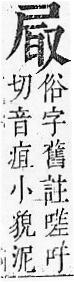 俗字舊註嗟吁
切音疽小貌泥